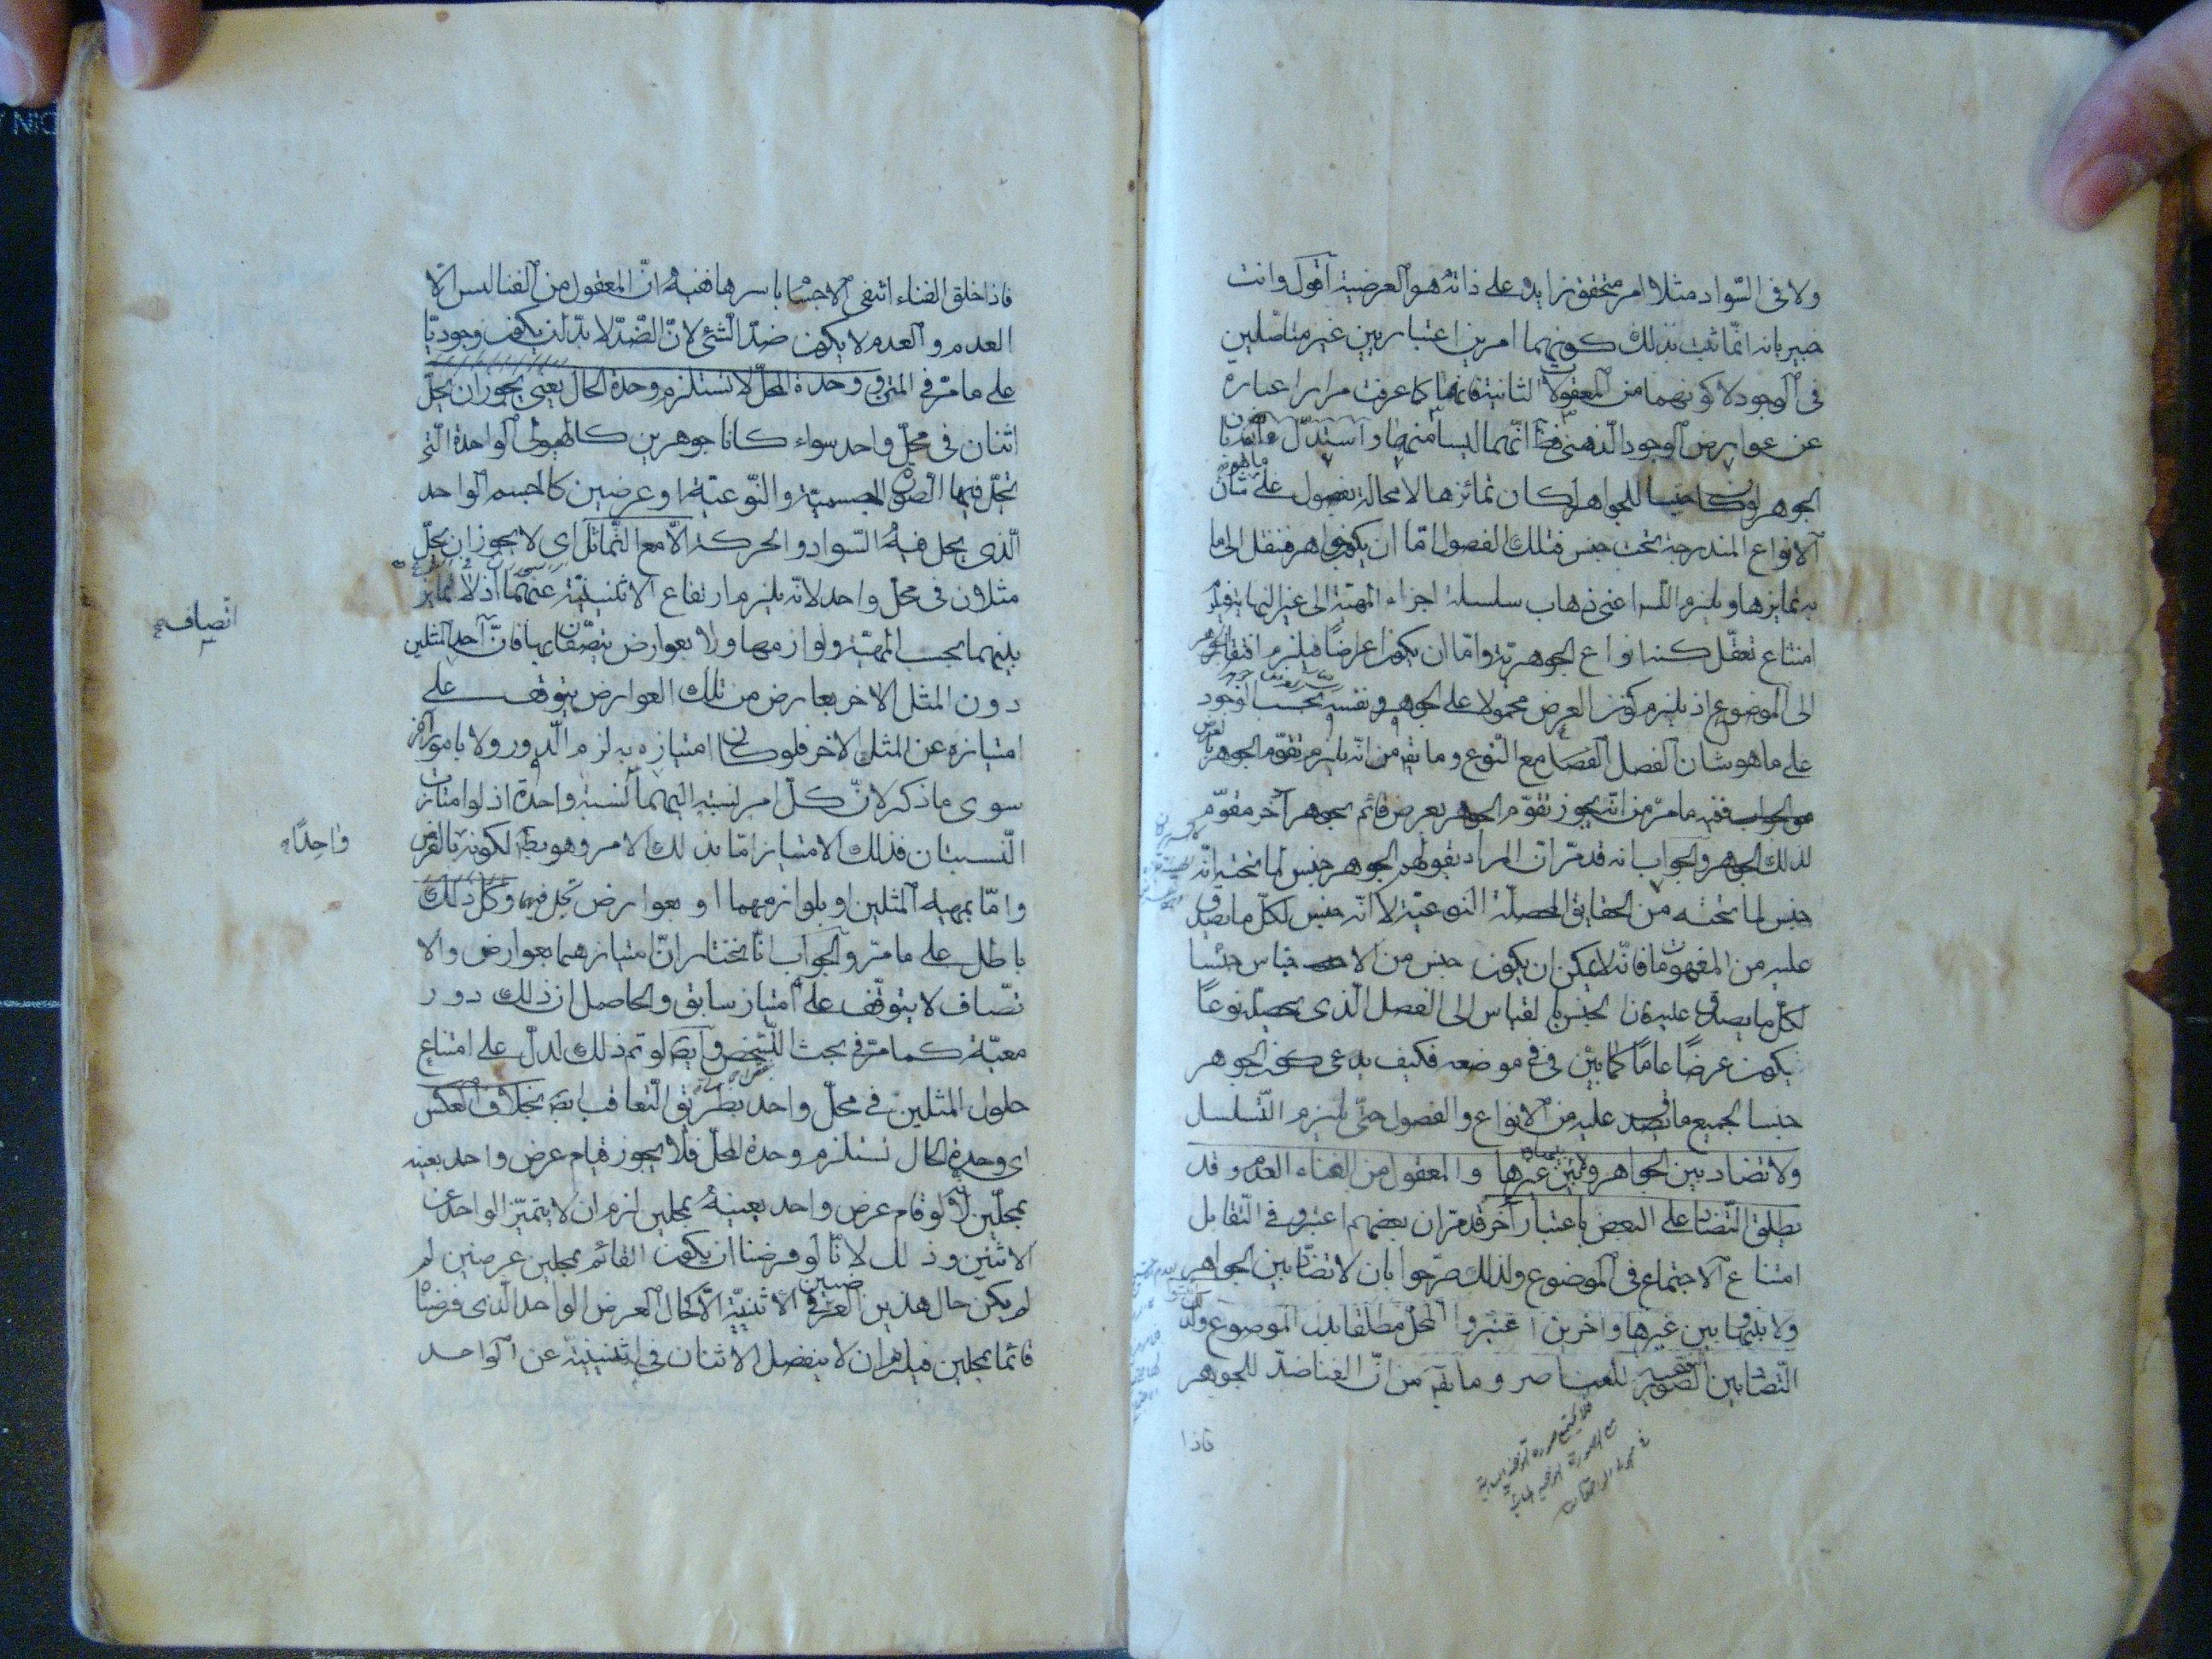 ولا فى السّواد مثلا امر متحقق زايد على ذاته هو العرضية اقول وانت
خبير بانه انّما ثبت بذلك كونهما امرين اعتباريين غير متاصّلين
فى الوجود لا كونهما من المعقولات الثانية فانها كما عرفت مرارا عبارة
عن عوارض الوجود الذهنى انّهما ليسا منها واستدلّ بان
الجوهر لو كان جنسا للجواهر لكان تمائزها لا محالة بفصول على ما هو شان
الانواع المندرجة تحت جنس فتلك الفصول امّا ان يكون جواهر فننقل الى ما
به تمايزها ويلزم التّس اعنى ذهاب سلسلة اجزاء المهيّة الى غير النهاية فيلزم
امتناع تعقّل كنه انواع الجوهريّة وامّا ان يكون اعراضًا فيلزم افتقار الجوهر
الى الموضوع اذ يلزم كون العرض محمولا على الجوهر ونفسه بحسب الوجود
على ما هو شان الفصل مع النّوع وما يقه من انّه يلزم تقوّم الجوهر بالعرض
ففيه ما مرّ من انّه يجوز تقوّم الجوهر بعرض قائم بجوهر آخر مقوّم
لذلك الجوهر والجواب انه قد مرّ انّ المراد بقولهم الجوهر جنس لما تحته انّه
جنس لما تحته من الحقايق المحصلة النوعيّة لا انّه جنس لكلّ ما يصدق
عليه من المفهومات فانّه لا يمكن ان يكون جنس من الاجناس جنسا
لكلّ ما يصدق عليه فان الجنس بالقياس الى الفصل الّذى يحصّله نوعًا
يكون عرضًا عامًا كما بيّن فى موضعه فكيف يدعى كون الجوهر
جنسا لجميع ما يصدق عليه من الانواع والفصول حتّى يلزم التّسلسل
ولا تضاد بين الجواهر ولا بينها وبين غيرها والمعقول من الفناء العدم وقد
يطلق التّضاد على البعض باعتبار آخر قد مرّ ان بعضهم اعتبروا فى التّقابل
امتناع الاجتماع فى الموضوع ولذلك صرّحوا بان لا تضادّ بين الجواهر
ولا بينها وبين غيرها واخرين اعتبروا المحلّ مطلقا بدل الموضوع ولذلك
التّضاد بين الصّور النوعيّة للعناصر وما يقه من انّ الفنا ضدّ للجوهر
فاذا
فاذا خلق الفناء انتفى الاجسام باسرها ففيه انّ المعقول من الفنا ليس الّا
العدم والعدم لا يكون ضدّ الشّئ لانّ الضّدّ لا بدّ ان يكون وجوديّا
على ما مرّ فى المتن ووحدة المحلّ لا تستلزم وحدة الحال يعنى يجوز ان يحلّ
اثنان فى محلّ واحد سواء كانا جوهرين كالهيولى الواحدة الّتى
تحلّ فيها الصّورة الجسميّة والنّوعيّة او عرضين كالجسم الواحد
الّذى يحل فيه السّواد والحركة الّا مع التّماثل اى لا يجوز ان يحلّ
مثلان فى محلّ واحد لانّه يلزم ارتفاع الاثنينيّة عنهما اذ لا تمايز
بينهما بحسب المهيّة ولوازمها ولا بعوارض يتّصفان بها فانّ احد المثلين
اتّصاف
دون المثل الاخر بعارض من تلك العوارض يتوقف على
امتيازه عن المثل الاخر فلو كان امتيازه به لزم الّدور ولا بامور اخر
سوى ما ذكر لانّ كلّ امر نسبته اليهما نسبة واحدة اذ لو امتازت
النّسبتان فذلك الامتياز امّا بذلك الامر وهو بط لكونه بالفرض
واحِدًا
وامّا بمهية المثلين او بلوازمهما او بعوارض تحل فيهما وكلّ ذلك
باطل على ما مرّ والجواب انّا نختار انّ امتيازهما بعوارض والا
تّصاف لا يتوقّف على امتياز سابق والحاصل ان ذلك دور
معيّة كما مرّ فى بحث التّشخّص وايضا لو تم ذلك لدلّ على امتناع
حلول المثلين فى محلّ واحد بطريق التّعاقب ايضا بخلاف العكس
اى وحدة الحال تستلزم وحدة المحلّ فلا يجوز قيام عرض واحد بعينه
بمحلّين لانّه لو قام عرض واحد بعينه بمحلين لزم ان لا يتميّز الواحد عن
الاثنين وذلك لانّا لو فرضنا ان يكون القائم بمحلين عرضين لم
لم يكن حال هذين العرضين فى الاثنيّة الّا كحال العرض الواحد الّذى فرضنا
قائما بمحلين فيلزم ان لا ينفصل الاثنان فى اثنينيّة عن الواحد